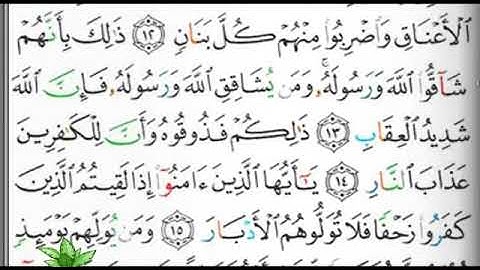 ٱلْأَعْنَاقِ وَٱضْرِبُوا۟ مِنْهُمْ كُلَّ بَنَانٍ ١٢ ذَٰلِكَ بِأَنَّهُمْ
شَآقُّوا۟ ٱللَّهَ وَرَسُولَهُۥ وَمَن يُشَاقِقِ ٱللَّهَ وَرَسُولَهُۥ فَإِنَّ ٱللَّهَ
شَدِيدُ ٱلْعِقَابِ ١٣ ذَٰلِكُمْ فَذُوقُوهُ وَأَنَّ لِلْكَٰفِرِينَ
عَذَابَ ٱلنَّارِ ١٤ يَٰٓأَيُّهَا ٱلَّذِينَ ءَامَنُوٓا۟ إِذَا لَقِيتُمُ ٱلَّذِينَ
كَفَرُوا۟ زَحْفًا فَلَا تُوَلُّوهُمُ ٱلْأَدْبَارَ ١٥ وَمَن يُوَلِّهِمْ يَوْمَئِذٍ